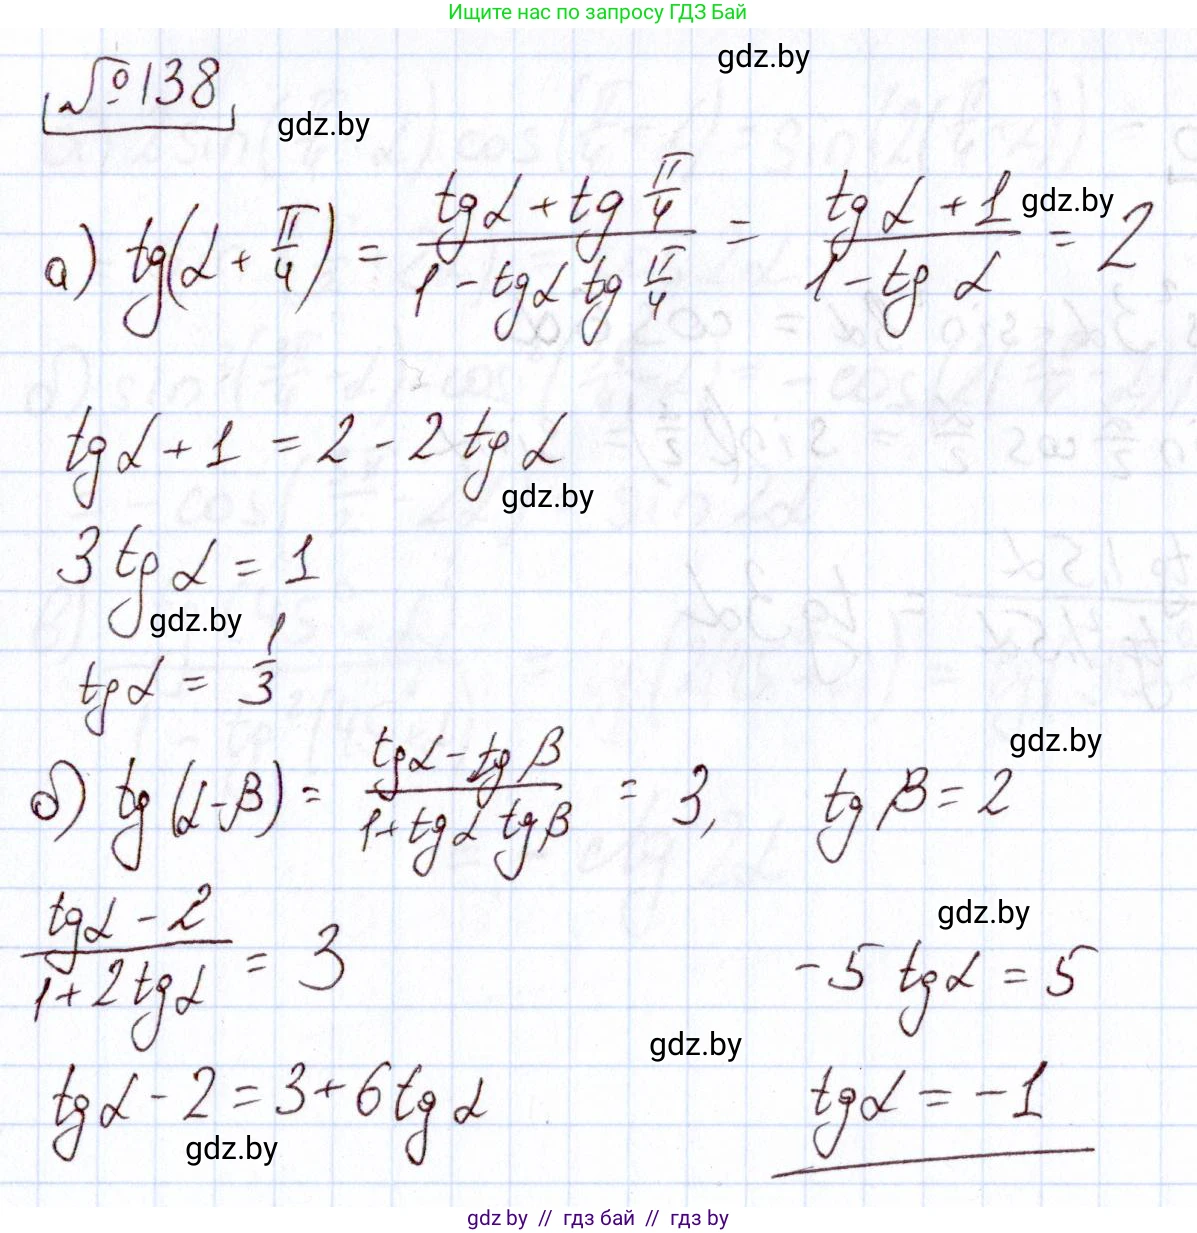 Ищите нас по запросу ГДЗ Бай
gdz.by
№138
gdz.by
а) tg(α + π/4) = (tgα + tg π/4)/(1 - tgα tg π/4) = (tg α + 1)/(1 - tg α) = 2
gdz.by
tgα + 1 = 2 - 2 tg α
gdz.by
3 tg α = 1
gdz.by
tgα = 1/3
gdz.by
б) tg(α-β) = (tgα - tg β)/(1 + tgα tgβ) = 3, tg β = 2
(tgα - 2)/(1 + 2 tgα) = 3
gdz.by
-5 tgα = 5
gdz.by
tgα - 2 = 3 + 6 tg α
tgα = -1
gdz.by
gdz by // гдз бай // гдз by